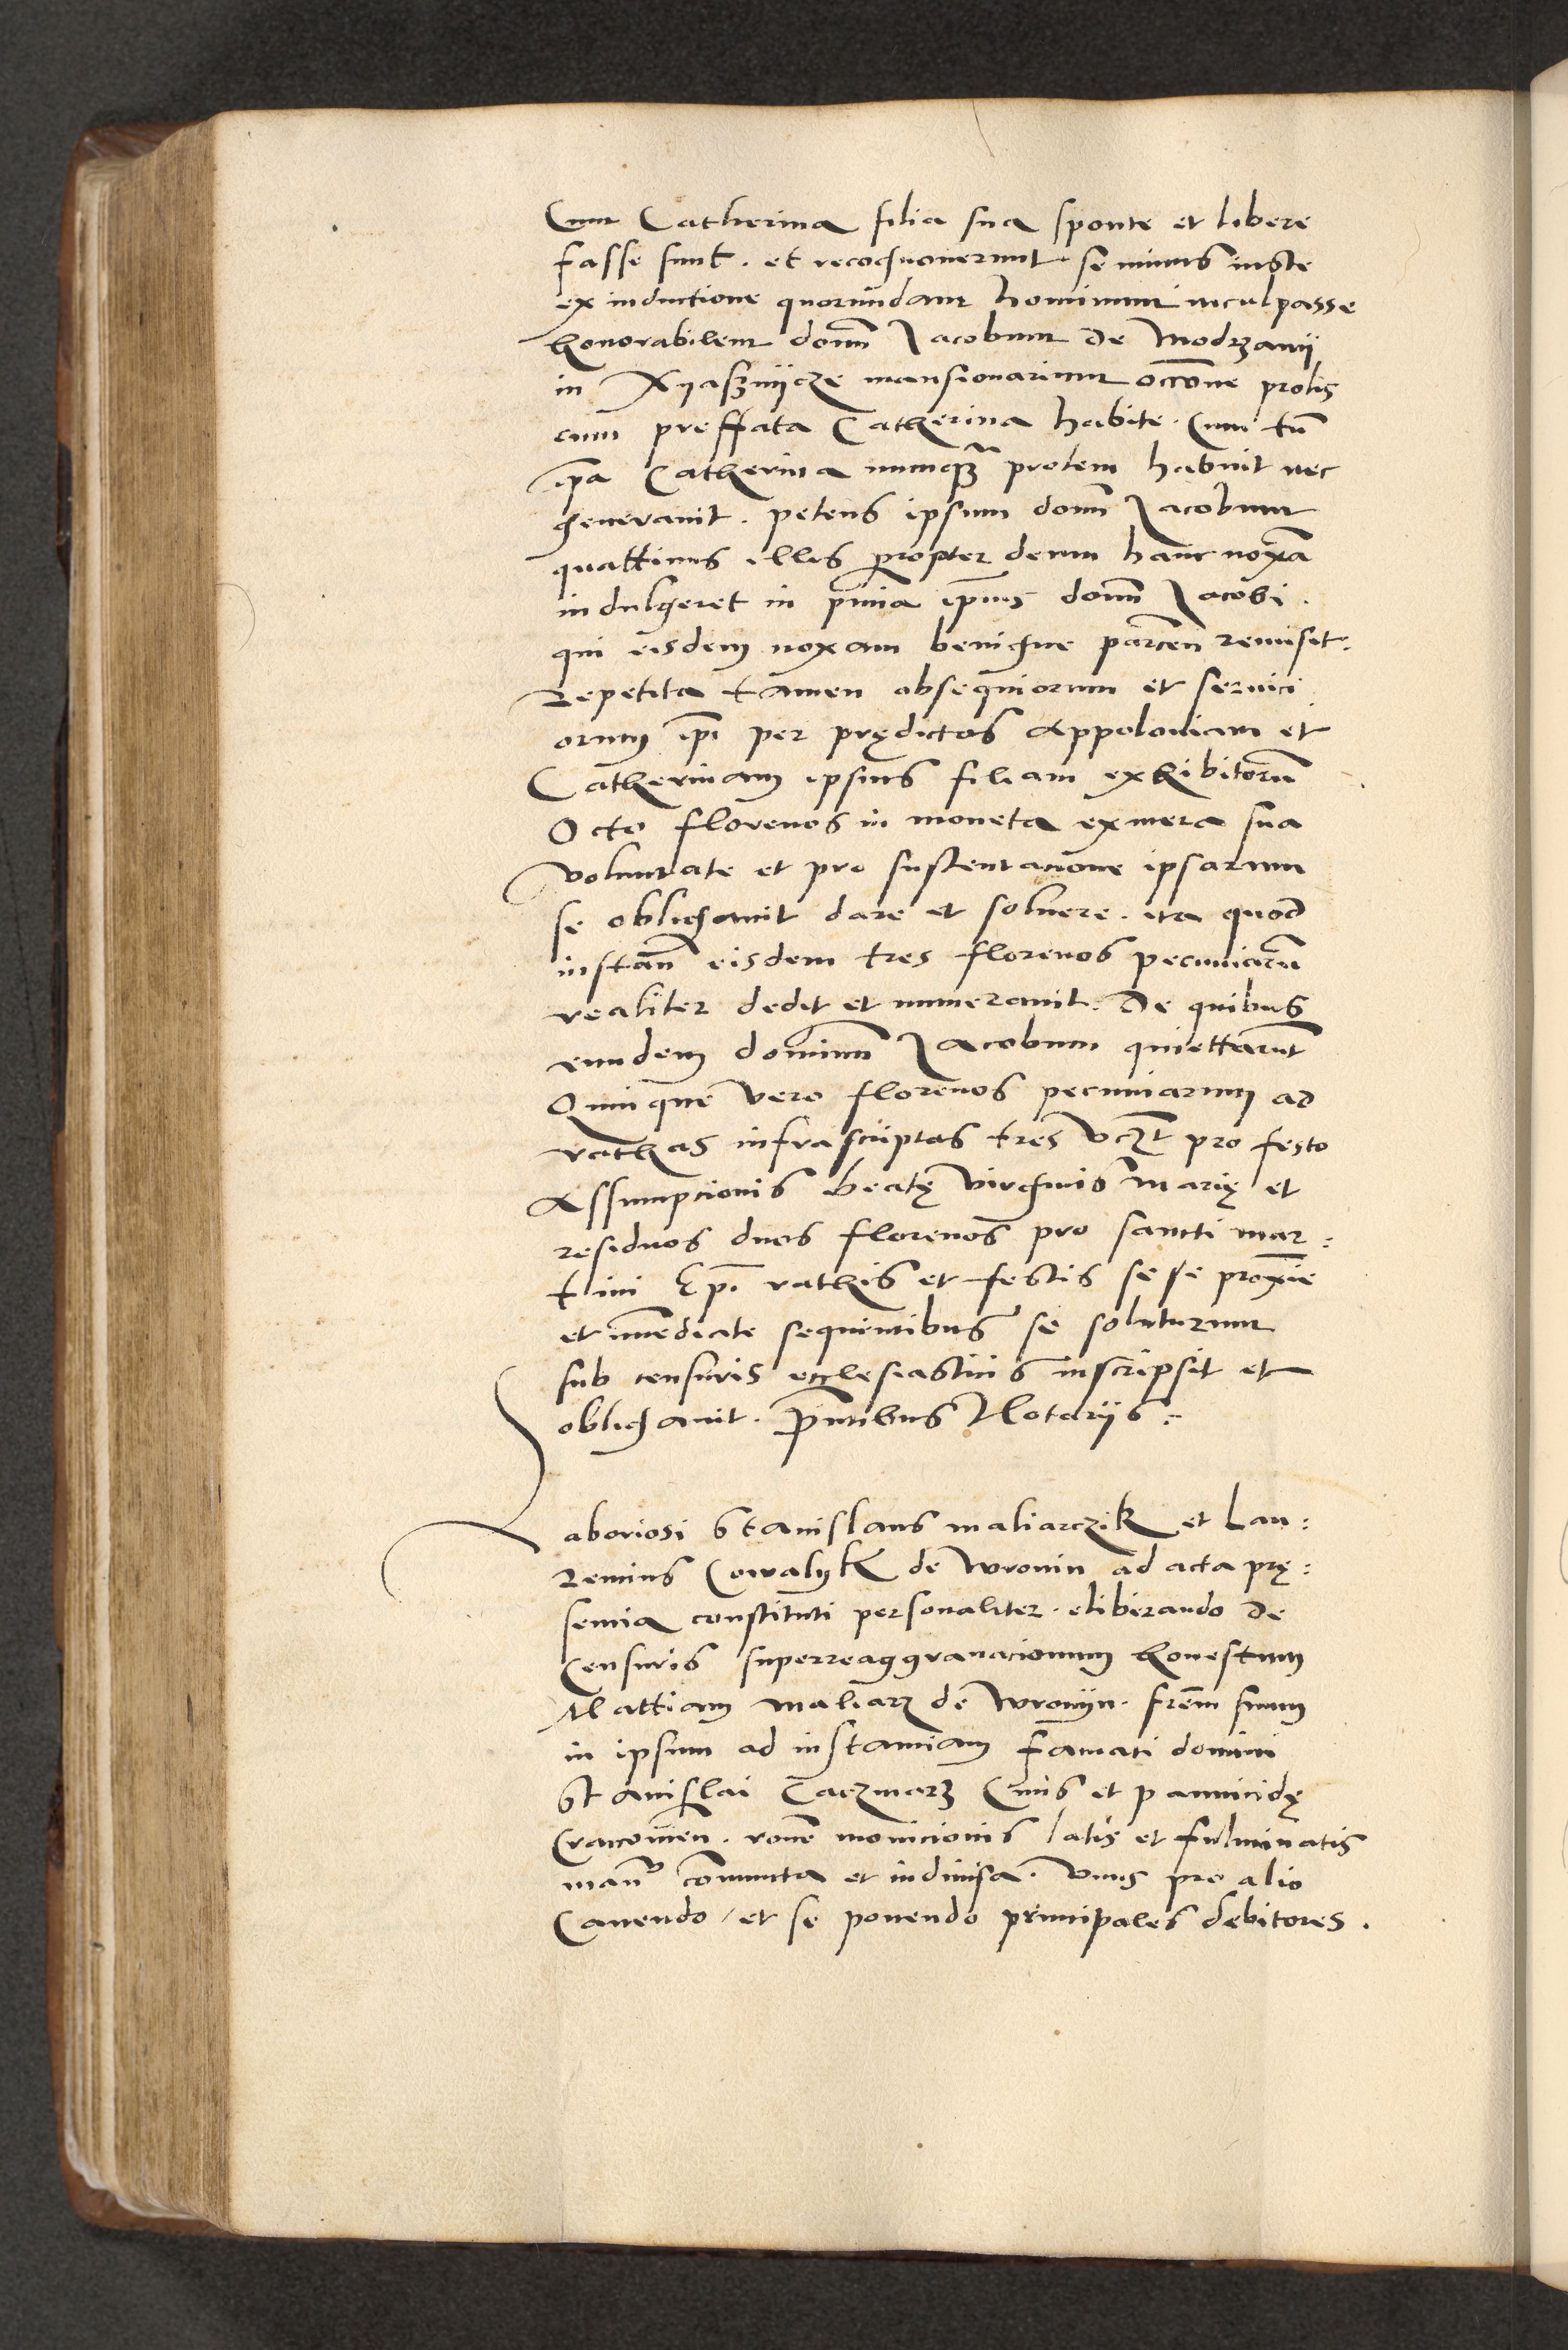 Cum Catherina filia sua sponte et libere
fasse sunt. et recognouerunt se minus iuste
ex inductione quorundam hominum inculpasse
honorabilem domn̄ Jacobum de Modrzanij
in Xyasznijcze mansionarium occōne prolis
cum preffata Catherina habite. Cum tn̄
ip̄a Catherina numqꝫ prolem habuit nec
generauit. petens ipsum domn̄ Jacobum
quattinus illis propter deum hanc noxā
indulgeret in pn̄cia ip̄ius domn̄ Jacobi.
qui eisdem noxam benigne parcen̄ remisit.
Repetita tamen obsequiorum et seruici
orum ip̄i per prędictas Appoloniam et
Catherinam ipsius filiam exhibitorū
Octo florenos in moneta ex mera sua
voluntate et pro sustentacione ipsarum
se obligauit dare et soluere. ita quod
instan̄ eisdem tres florenos pecuniarū
realiter dedit et numerauit. De quibus
eundem dominū Jacobum quiettarūt
Quinque vero florenos pecuniarum ad
rathas infrascriptas tres vcꝫt pro festo
Assumpcionis beatę virginis Marię et
residuos duos florenos pro sancti mar:
tini Ep̄i rathis et festis sese proxīe
et īmediate sequentibus se soluturum
sub censuris ecclesiasticis inscripsit et
obligauit. Pn̄tibus Notarijs:

Laboriosi Stanislaus maliarczik et Lau:
rencius Cowalyk de Wronin ad acta prę:
sencia constituti personaliter. eliberando de
Censuris superreaggrauacionum honestum
Mattiam Maliarz de Wronijn. frēm suum
in ipsum ad instanciam famati domini
Stanislai Caczmarz Ciuis et pannicidę
Cracouien̄. rōne monicionis latis et fulminatis
man̄ coniuncta et indiuisa. vnus pro alio
Cauendo / et se ponendo principales debitores.